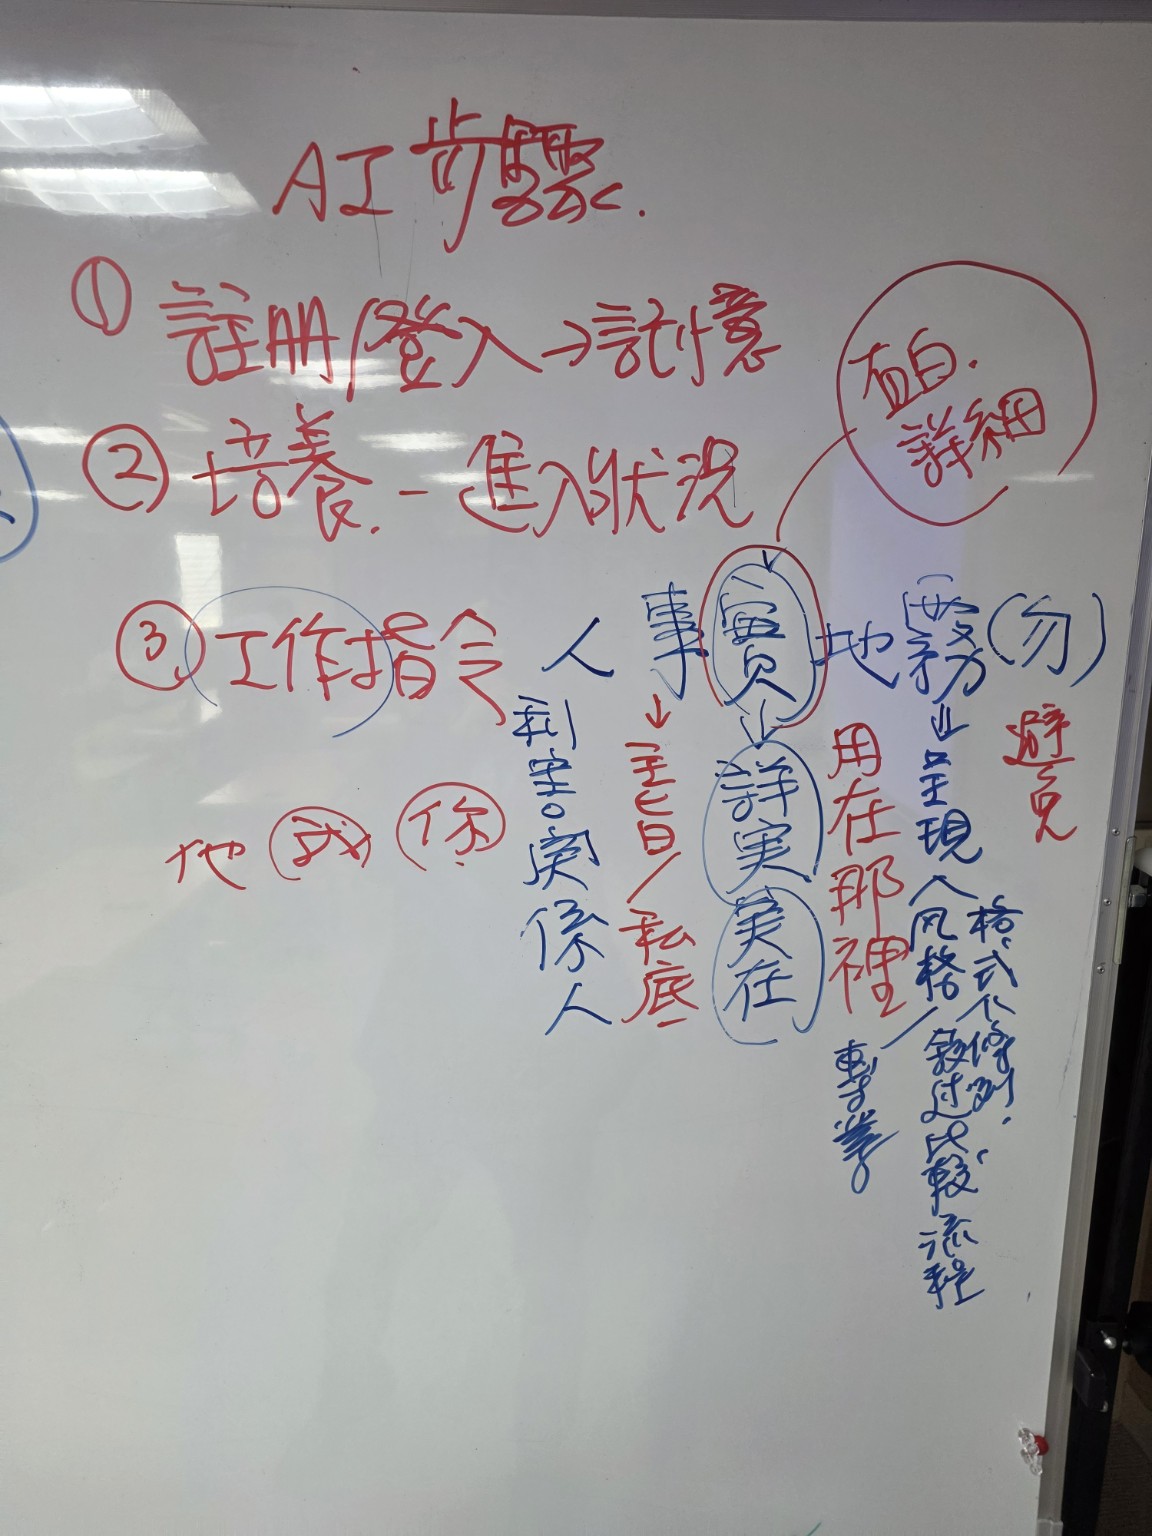 AI步驟.
① 註冊/登入→記憶
直白.
詳細
② 培養.-進入狀況
③ 工作指令 人 事 實 地 務(勿)
他 我 你
利害關係人
主旨/
私底
詳実
実在
用在那裡
呈現
風格/
敘过比較、流程
格式
條列.
避免